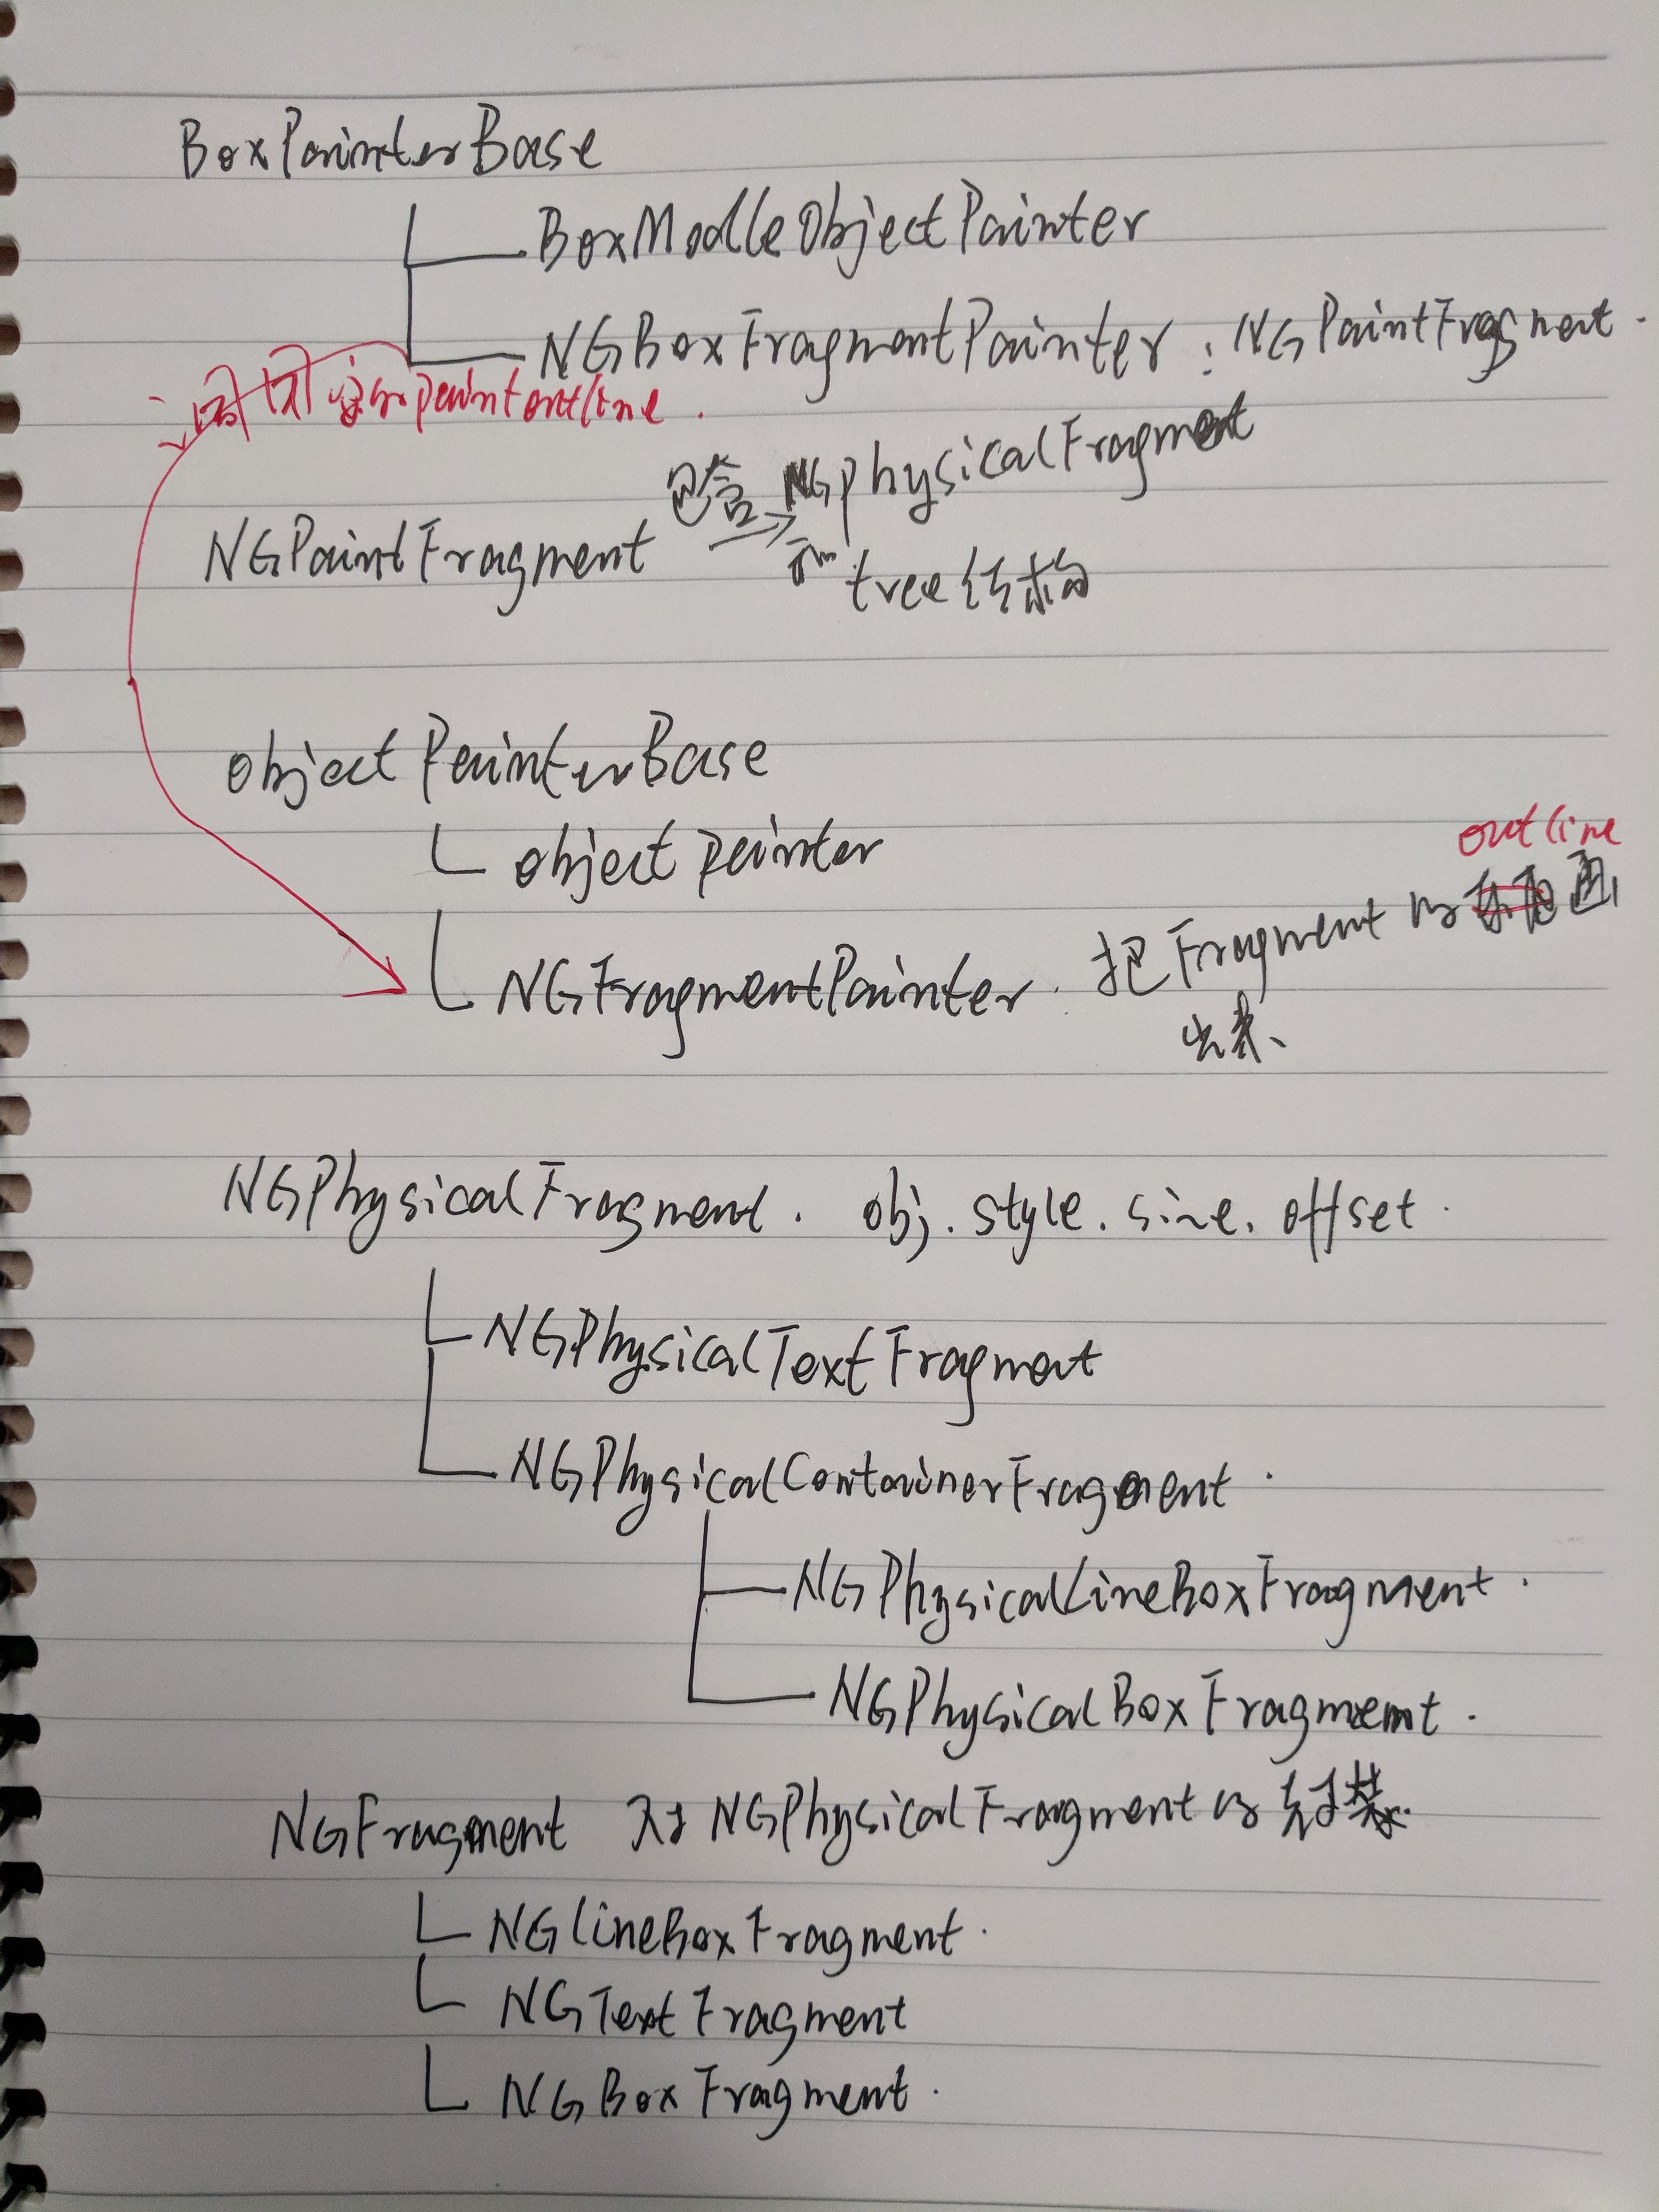 BoxPainterBase
BoxModleObjectPainter
NGBoxFragmentPainter : NGPaintFragment.
paintoutline.
包含 NGPhysicalFragment
NGPaintFragment
和 tree结构
objectPainterBase
objectpainter
outline
NGFragmentPainter. 把Fragment的 画
出来、
NGPhysicalFragment. obj. style. size. offset.
NGPhysicalTextFragment
NGPhysicalContainerFragment.
NGPhysicalLineBoxFragment.
NGPhysicalBoxFragment.
NGFragment 对NGPhysicalFragment的封装.
NGlineBoxFragment.
NGTextFragment
NGBoxFragment.